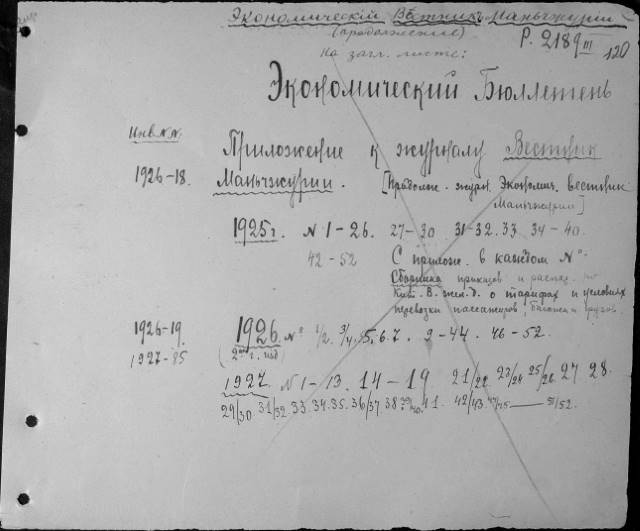 Экономическій Вѣстникъ Маньчжуріи
(продолжение)
Р. 2189 III
120
на загл. листе:
Экономический Бюллетень
Инв.№№
Приложение к журналу Вестник
1926-18. Маньчжурии. [Продолж. журн. Экономич. вестник
Маньчжурии]
1925 г. N 1-26. 27-30 31-32. 33. 34-40.
42-52 С прилож. в каждом №:
Сборника приказов и распор. по
Кит. В. жел. д. о тарифах и условиях
перевозки пассажиров, багажа и грузов.
1926-19. 1926 № 1/2. 3/4. 5. 6. 7. 9-44. 46-52.
1927-85 (2ой г. изд)
1927. N 1-13. 14-19 21/22 23/24 25/26 27 28.
29/30. 31/32. 33. 34. 35. 36/37. 38. 42/43. 51/52.